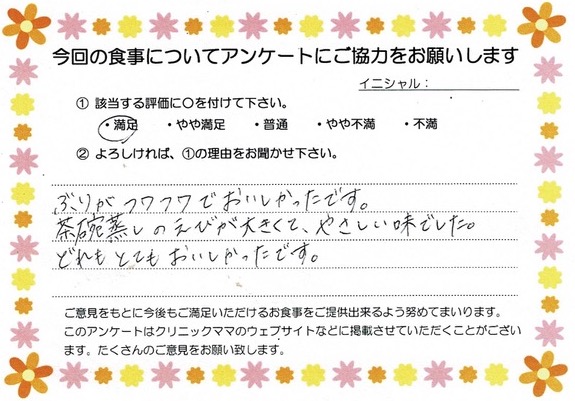 今回の食事についてアンケートにご協力をお願いします
イニシャル：
① 該当する評価に〇を付けて下さい。
・満足 ・やや満足 ・普通 ・やや不満 ・不満
② よろしければ、①の理由をお聞かせ下さい。
ぶりがフワフワでおいしかったです。
茶碗蒸しのえびが大きくて、やさしい味でした。
どれもとてもおいしかったです。
ご意見をもとに今後もご満足いただけるお食事をご提供出来るよう努めてまいります。
このアンケートはクリニックママのウェブサイトなどに掲載させていただくことがござい
ます。たくさんのご意見をお願い致します。